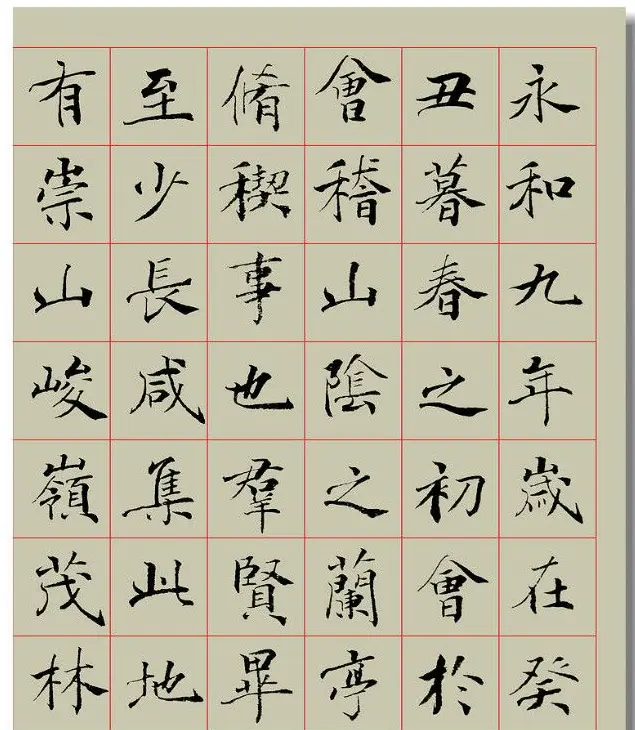 永和九年歲在癸
丑暮春之初會於
會稽山陰之蘭亭
脩稧事也羣賢畢
至少長咸集此地
有崇山峻嶺茂林